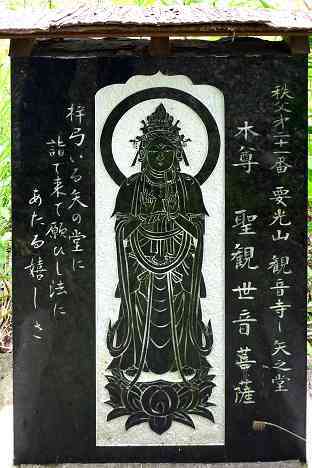 秩父才二十一番 要光山 観音寺 矢之堂
本尊 聖観世音菩薩
梓弓いる矢の堂に
詣で来て願ひし法に
あたる嬉しさ